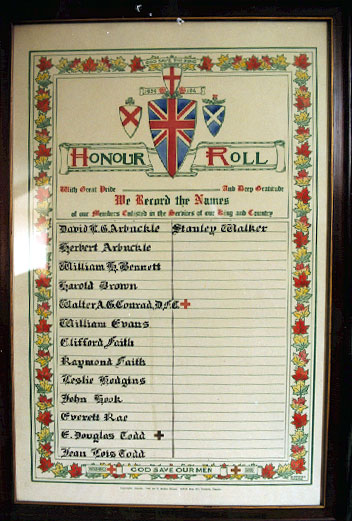 HONOUR ROLL
With Great Pride And Deep Gratitude
We Record the Names
of our Members Enlisted in the Services of our King and Country
David L.G. Arbuckle Stanley Walker
Herbert Arbuckle
William H. Bennett
Harold Brown
Walter A.G. Conrad, D.F.C.
William Evans
Clifford Faith
Raymond Faith
Leslie Hodgins
John Hook
Everett Rae
E. Douglas Todd
Jean Lois Todd
GOD SAVE OUR MEN